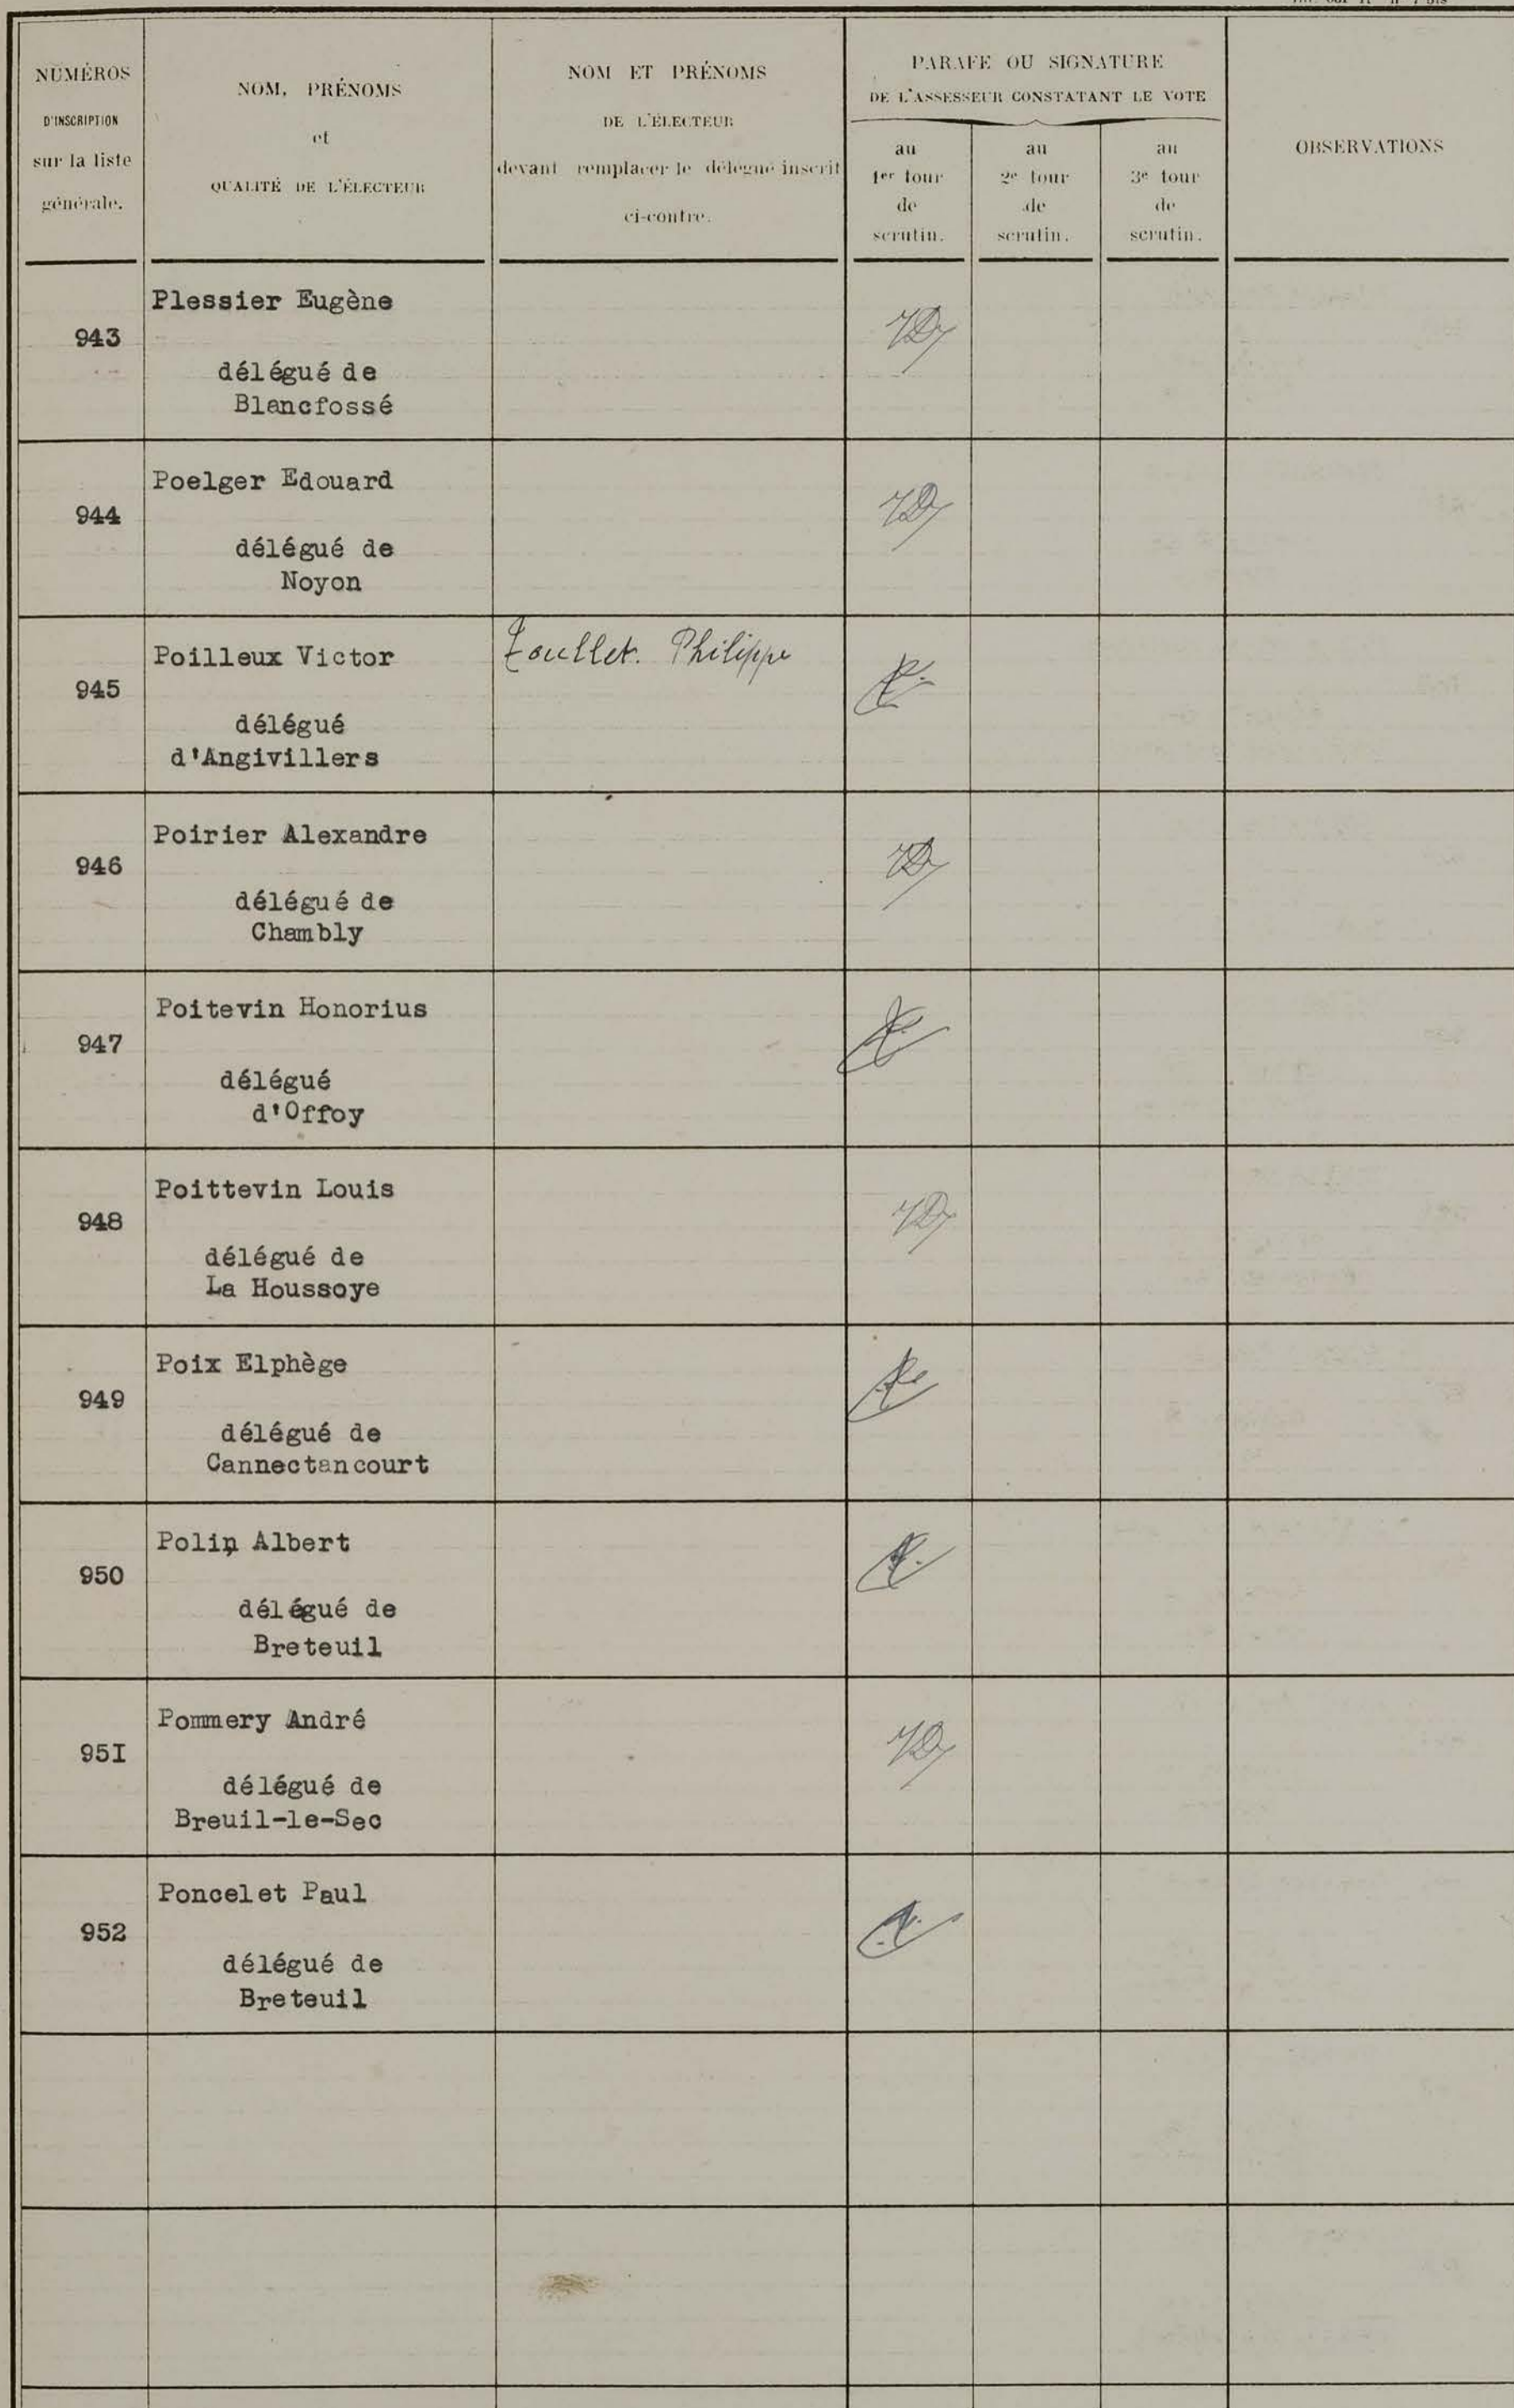 NUMÉROS
D'INSCRIPTION
sur la liste
générale.
NOM, PRÉNOMS
et
QUALITÉ DE L'ÉLECTEUR
NOM ET PRÉNOMS
DE L'ÉLECTEUR
devant remplacer le délégué inscrit
ci-contre.
PARAFE OU SIGNATURE
DE L'ASSESSEUR CONSTATANT LE VOTE
au
1er tour
de
scrutin.
au
2e tour
de
scrutin.
au
3e tour
de
scrutin.
OBSERVATIONS
943
Plessier Eugène
délégué de
Blancfossé
944
Poelger Edouard
délégué de
Noyon
945
Poilleux Victor
délégué
d'Angivillers
Philippe
946
Poirier Alexandre
délégué de
Chambly
947
Poitevin Honorius
délégué
d'Offoy
948
Poittevin Louis
délégué de
La Houssoye
949
Poix Elphège
délégué de
Cannectancourt
950
Polin Albert
délégué de
Breteuil
95I
Pommery André
délégué de
Breuil-le-Sec
952
Poncelet Paul
délégué de
Breteuil